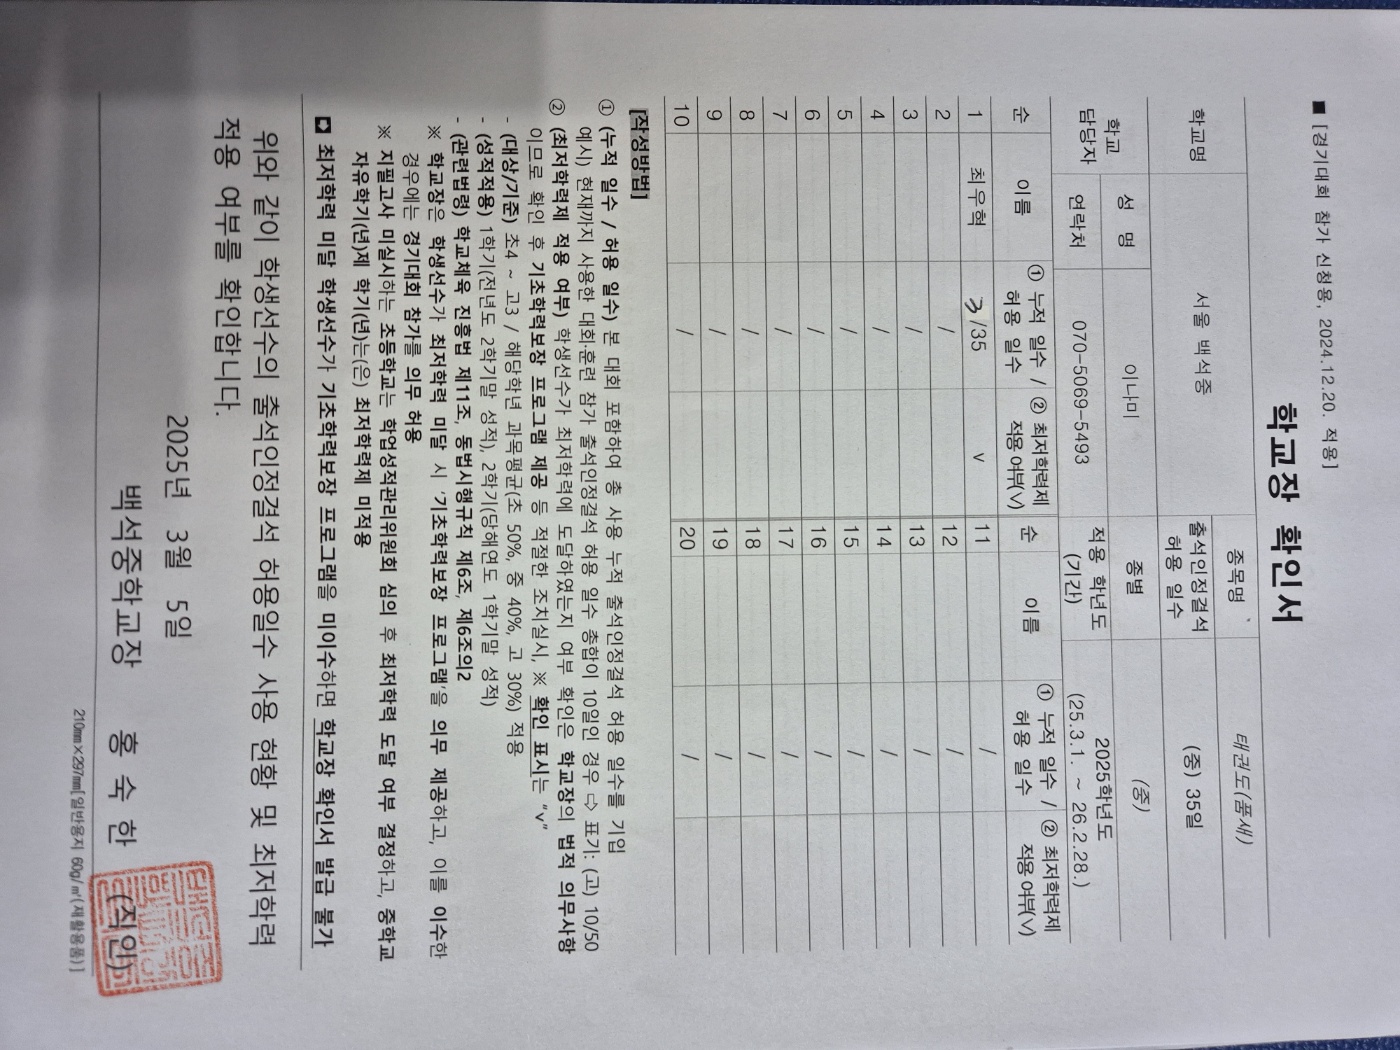 ■ [경기대회 참가 신청용, 2024.12.20. 적용]
학교장 확인서
학교명 서울 백석중 종목명 태권도(품새)
출석인정결석 허용 일수 (중) 35일
학교 담당자 성 명 이나미 종별 (중)
연락처 070-5069-5493 적용 학년도 (기간) 2025학년도 (25.3.1. ~ 26.2.28.)
순 이름 ① 누적 일수 / 허용 일수 ② 최저학력제 적용 여부(∨) 순 이름 ① 누적 일수 / 허용 일수 ② 최저학력제 적용 여부(∨)
1 최우혁 3/35 v 11 /
2 / 12 /
3 / 13 /
4 / 14 /
5 / 15 /
6 / 16 /
7 / 17 /
8 / 18 /
9 / 19 /
10 / 20 /
[작성방법]
① (누적 일수 / 허용 일수) 본 대회 포함하여 총 사용 누적 출석인정결석 허용 일수를 기입
예시) 현재까지 사용한 대회·훈련 참가 출석인정결석 허용 일수 총합이 10일인 경우 ⇨ 표기: (고) 10/50
② (최저학력제 적용 여부) 학생선수가 최저학력에 도달하였는지 여부 확인은 학교장의 법적 의무사항
이므로 확인 후 기초학력보장 프로그램 제공 등 적절한 조치실시, ※ 확인 표시는 "v"
- (대상/기준) 초4 ~ 고3 / 해당학년 과목평균(초 50%, 중 40%, 고 30%) 적용
- (성적적용) 1학기(전년도 2학기말 성적), 2학기(당해연도 1학기말 성적)
- (관련법령) 학교체육 진흥법 제11조, 동법시행규칙 제6조, 제6조의2
※ 학교장은 학생선수가 최저학력 미달 시 '기초학력보장 프로그램'을 의무 제공하고, 이를 이수한
경우에는 경기대회 참가를 의무 허용
※ 지필고사 미실시하는 초등학교는 학업성적관리위원회 심의 후 최저학력 도달 여부 결정하고, 중학교
자유학기(년)제 학기(년)는(은) 최저학력제 미적용
◘ 최저학력 미달 학생선수가 기초학력보장 프로그램을 미이수하면 학교장 확인서 발급 불가
위와 같이 학생선수의 출석인정결석 허용일수 사용 현황 및 최저학력
적용 여부를 확인합니다.
2025년 3월 5일
백석중학교장 홍 숙 한 (직인)
210㎜×297㎜[일반용지 60g/㎡(재활용품)]